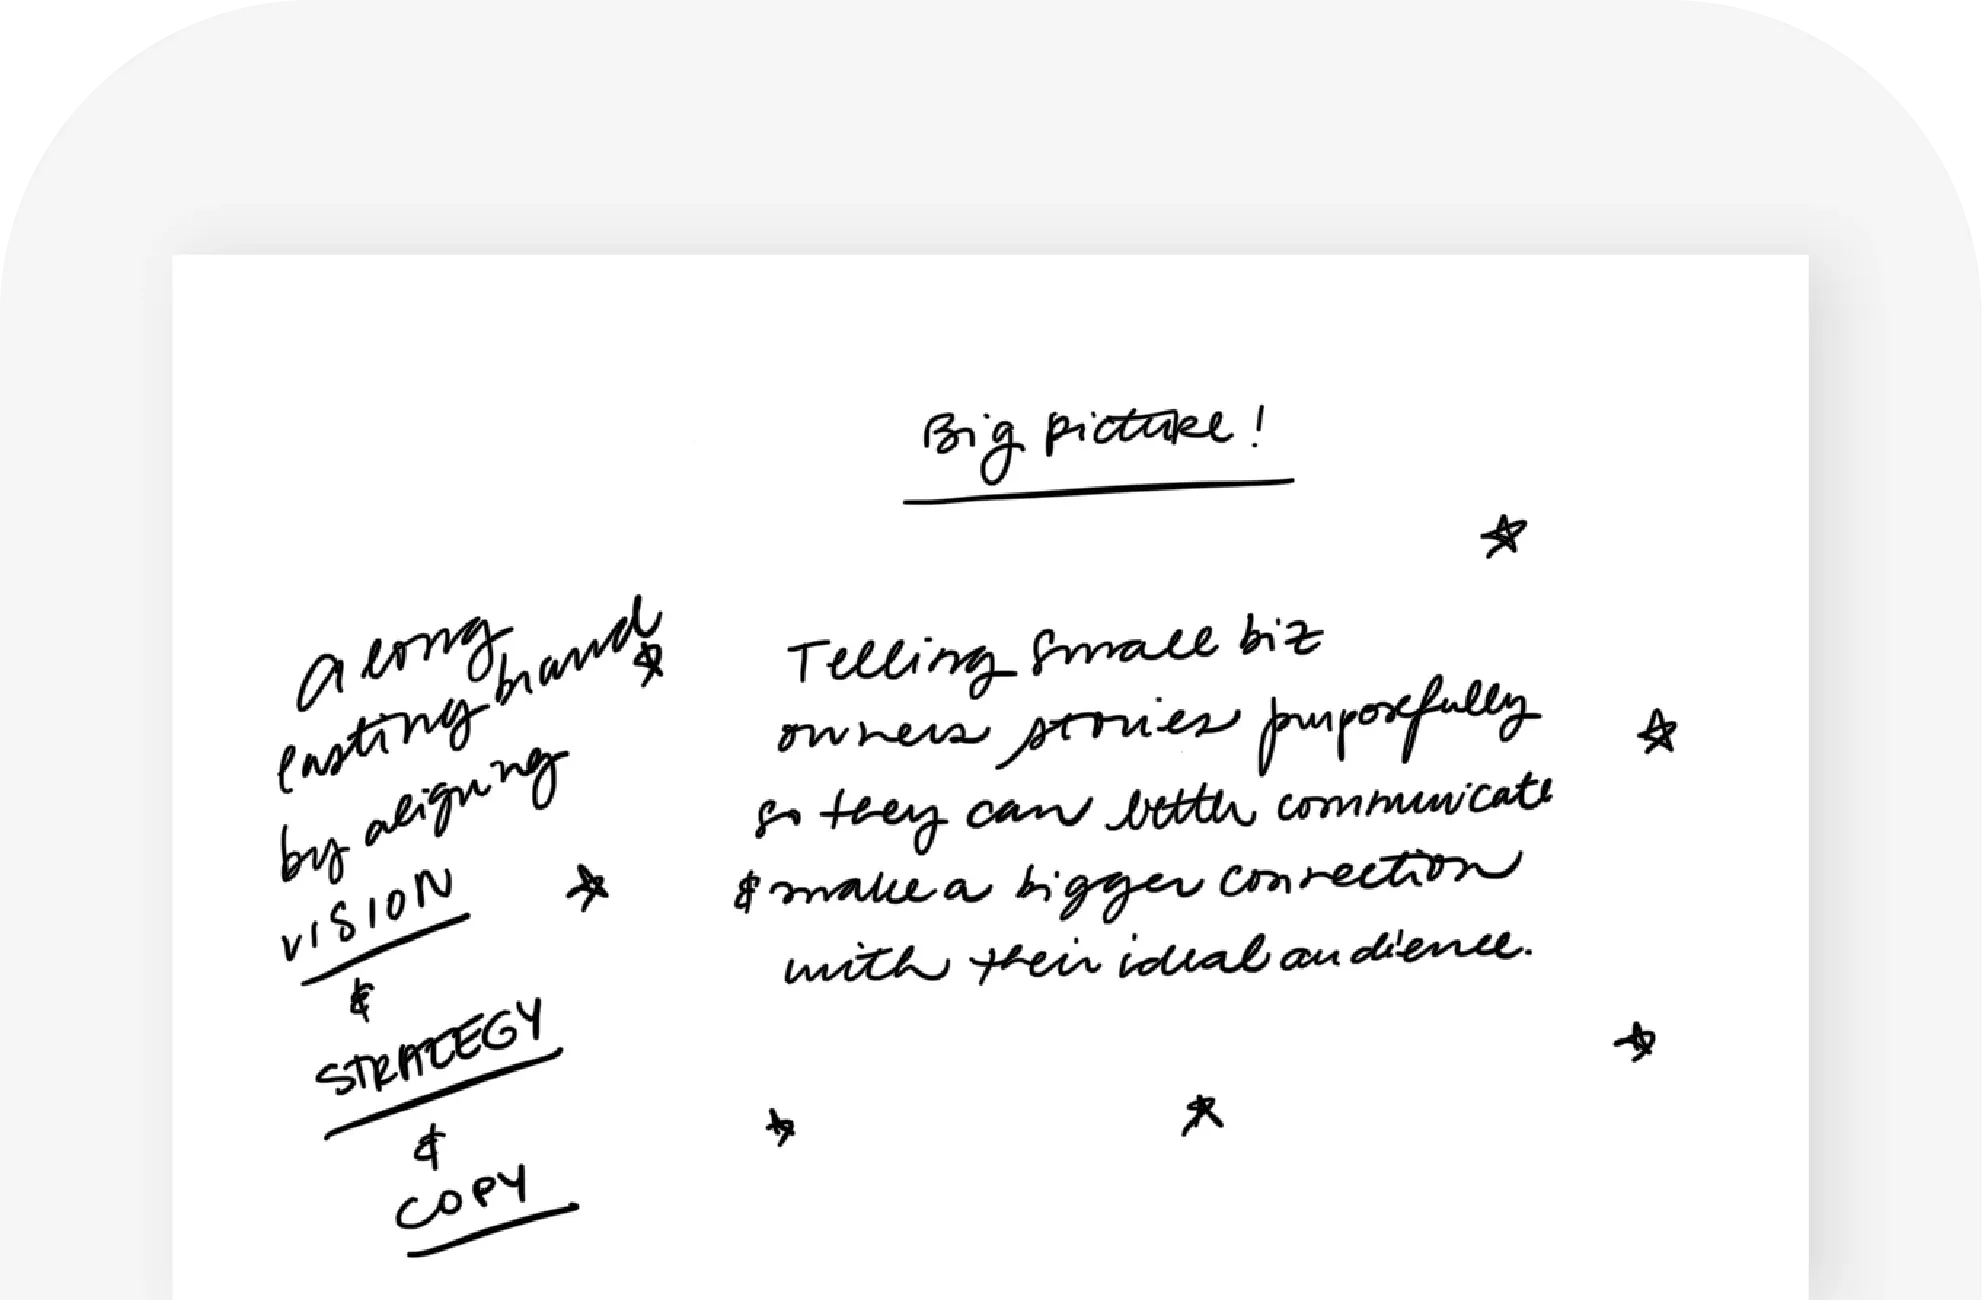 Big picture!
a long
lasting brand
by aligning
VISION
&
STRATEGY
&
COPY
Telling small biz
owners stories purposefully
so they can better communicate
& make a bigger connection
with their ideal audience.